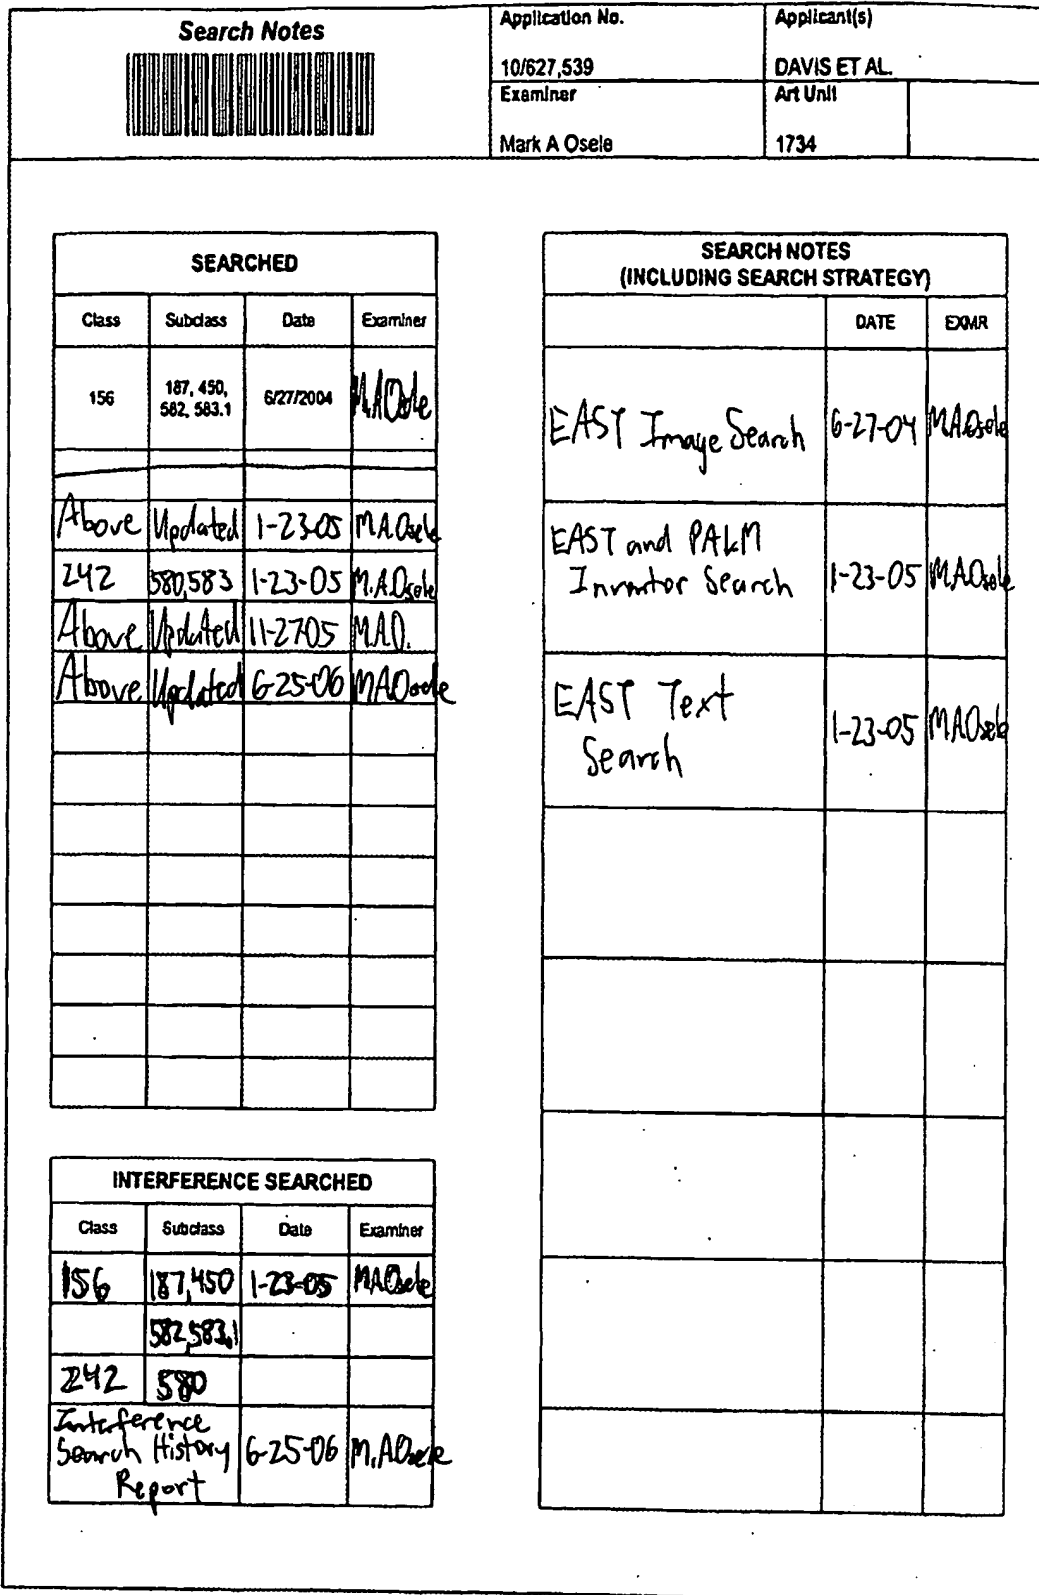 Search Notes
Application No.
10/627,539
Applicant(s)
DAVIS ET AL.
Examiner
Mark A Osele
Art Unit
1734
SEARCHED
Class Subclass Date Examiner
156 187, 450, 582, 583.1 6/27/2004 M.A.Osele
Above Updated 1-23-05 M.A.Osele
242 580,583 1-23-05 M.A.Osele
Above Updated 11-27-05 M.A.O.
Above Updated 6-25-06 M.A.Osele
INTERFERENCE SEARCHED
Class Subclass Date Examiner
156 187,450 1-23-05 M.A.Osele
582,583.1
242 580
Interference
Search History
Report 6-25-06 M.A.Osele
SEARCH NOTES
(INCLUDING SEARCH STRATEGY)
DATE EXMR
EAST Image Search 6-27-04 M.A.Osele
EAST and PALM
Inventor Search 1-23-05 M.A.Osele
EAST Text
Search 1-23-05 M.A.Osele